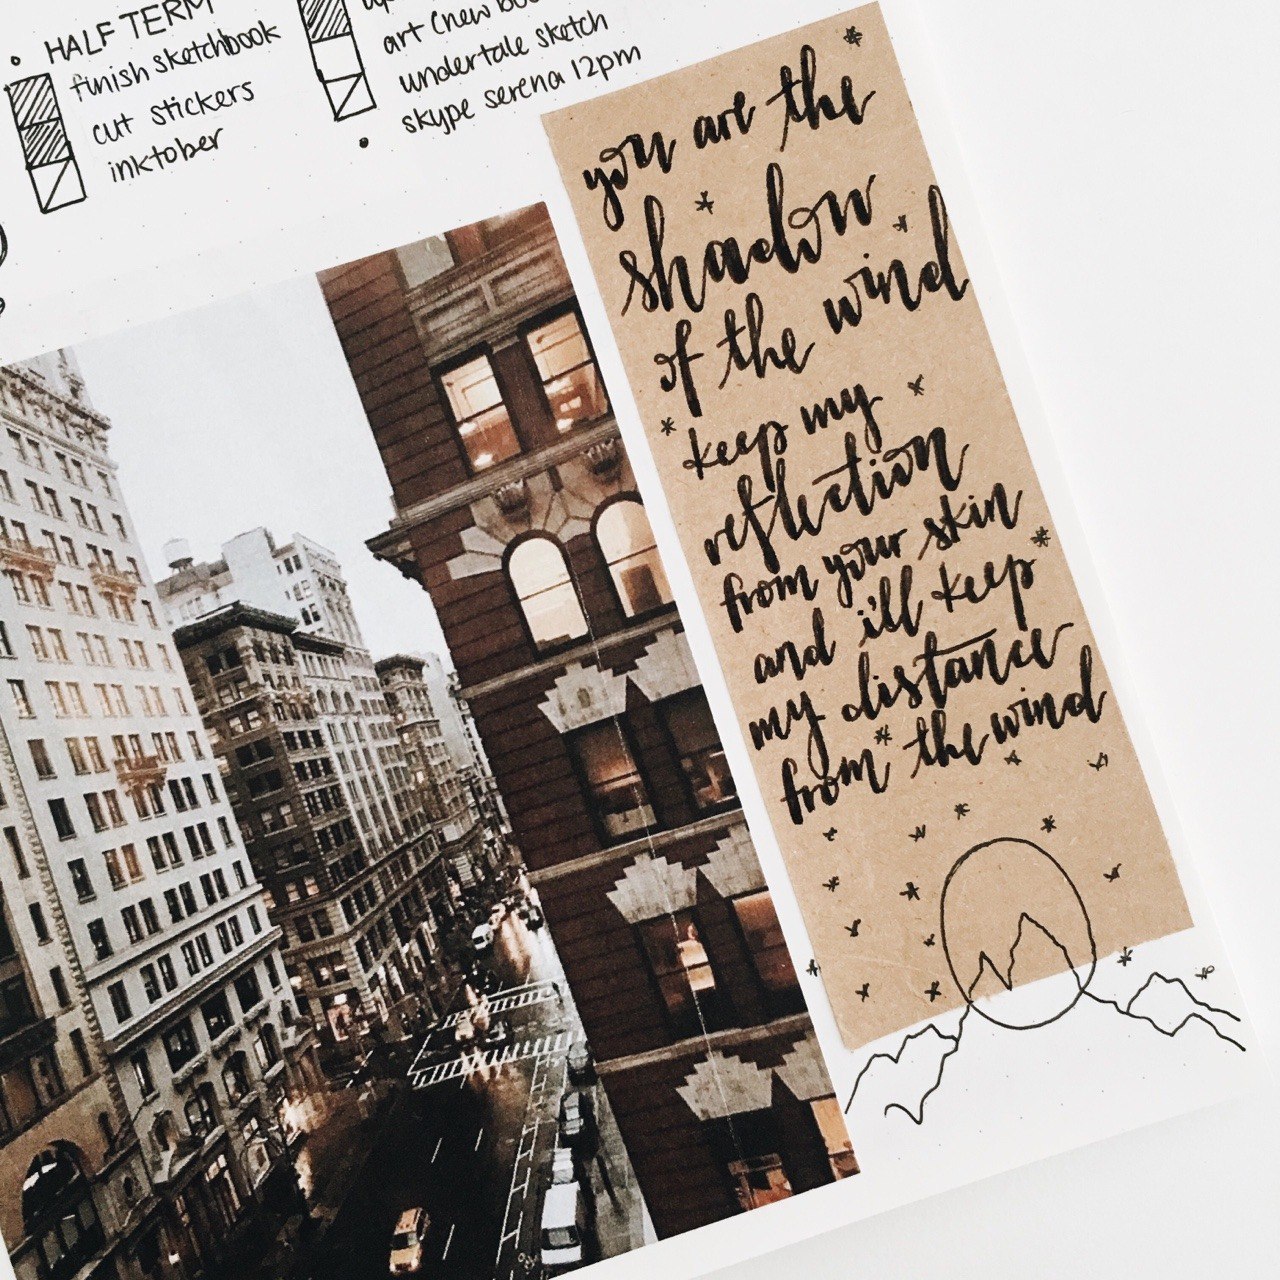 HALF TERM
finish sketchbook
cut stickers
inktober
art (new
undertale sketch
skype serena 12pm
you are the
shadow
of the wind
keep my
reflection
from your skin
and i'll keep
my distance
from the wind